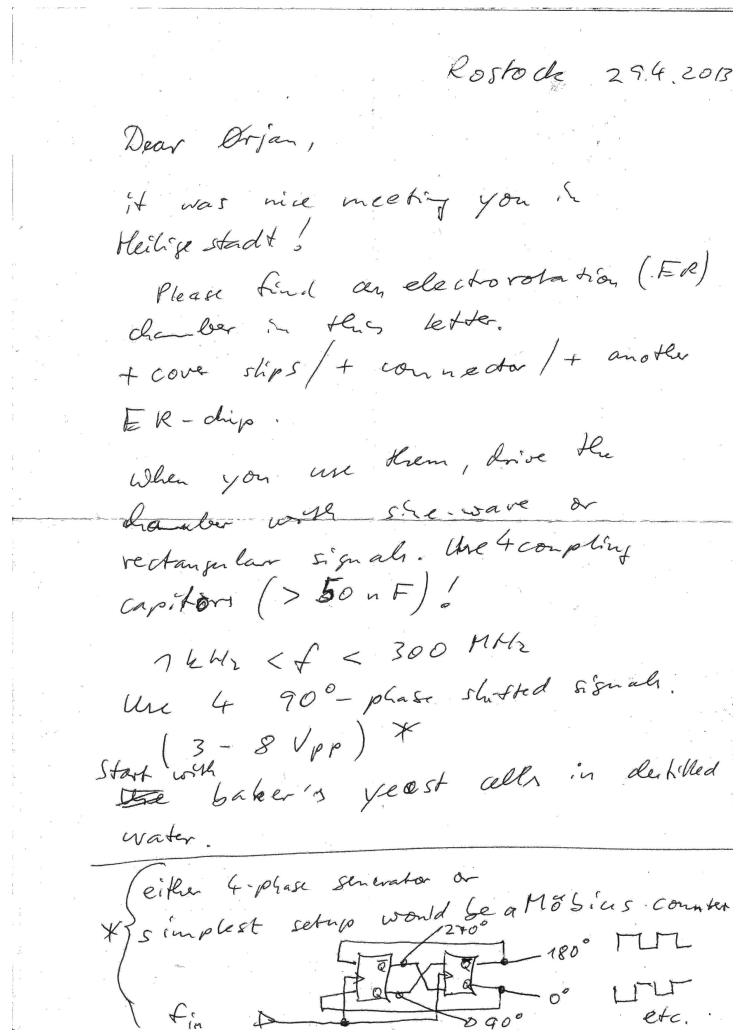 Rostock 29.4.2013
Dear Ørjan,
it was nice meeting you in
Heiligestadt!
Please find an electrorotation (ER)
chamber in this letter.
+ cover slips / + connector / + another
ER-chip.
When you use them, drive the
chamber with sine-wave or
rectangular signals. Use 4 coupling
capitors (> 50 nF)!
1 kHz < f < 300 MHz
Use 4 90°-phase shifted signals.
(3 - 8 Vpp) *
Start with
baker's yeast cells in destilled
water.
either 4-phase generator or
* simplest setup would be a Möbius counter
270°
180°
Q Q
Q Q
0°
90°
fin
etc.